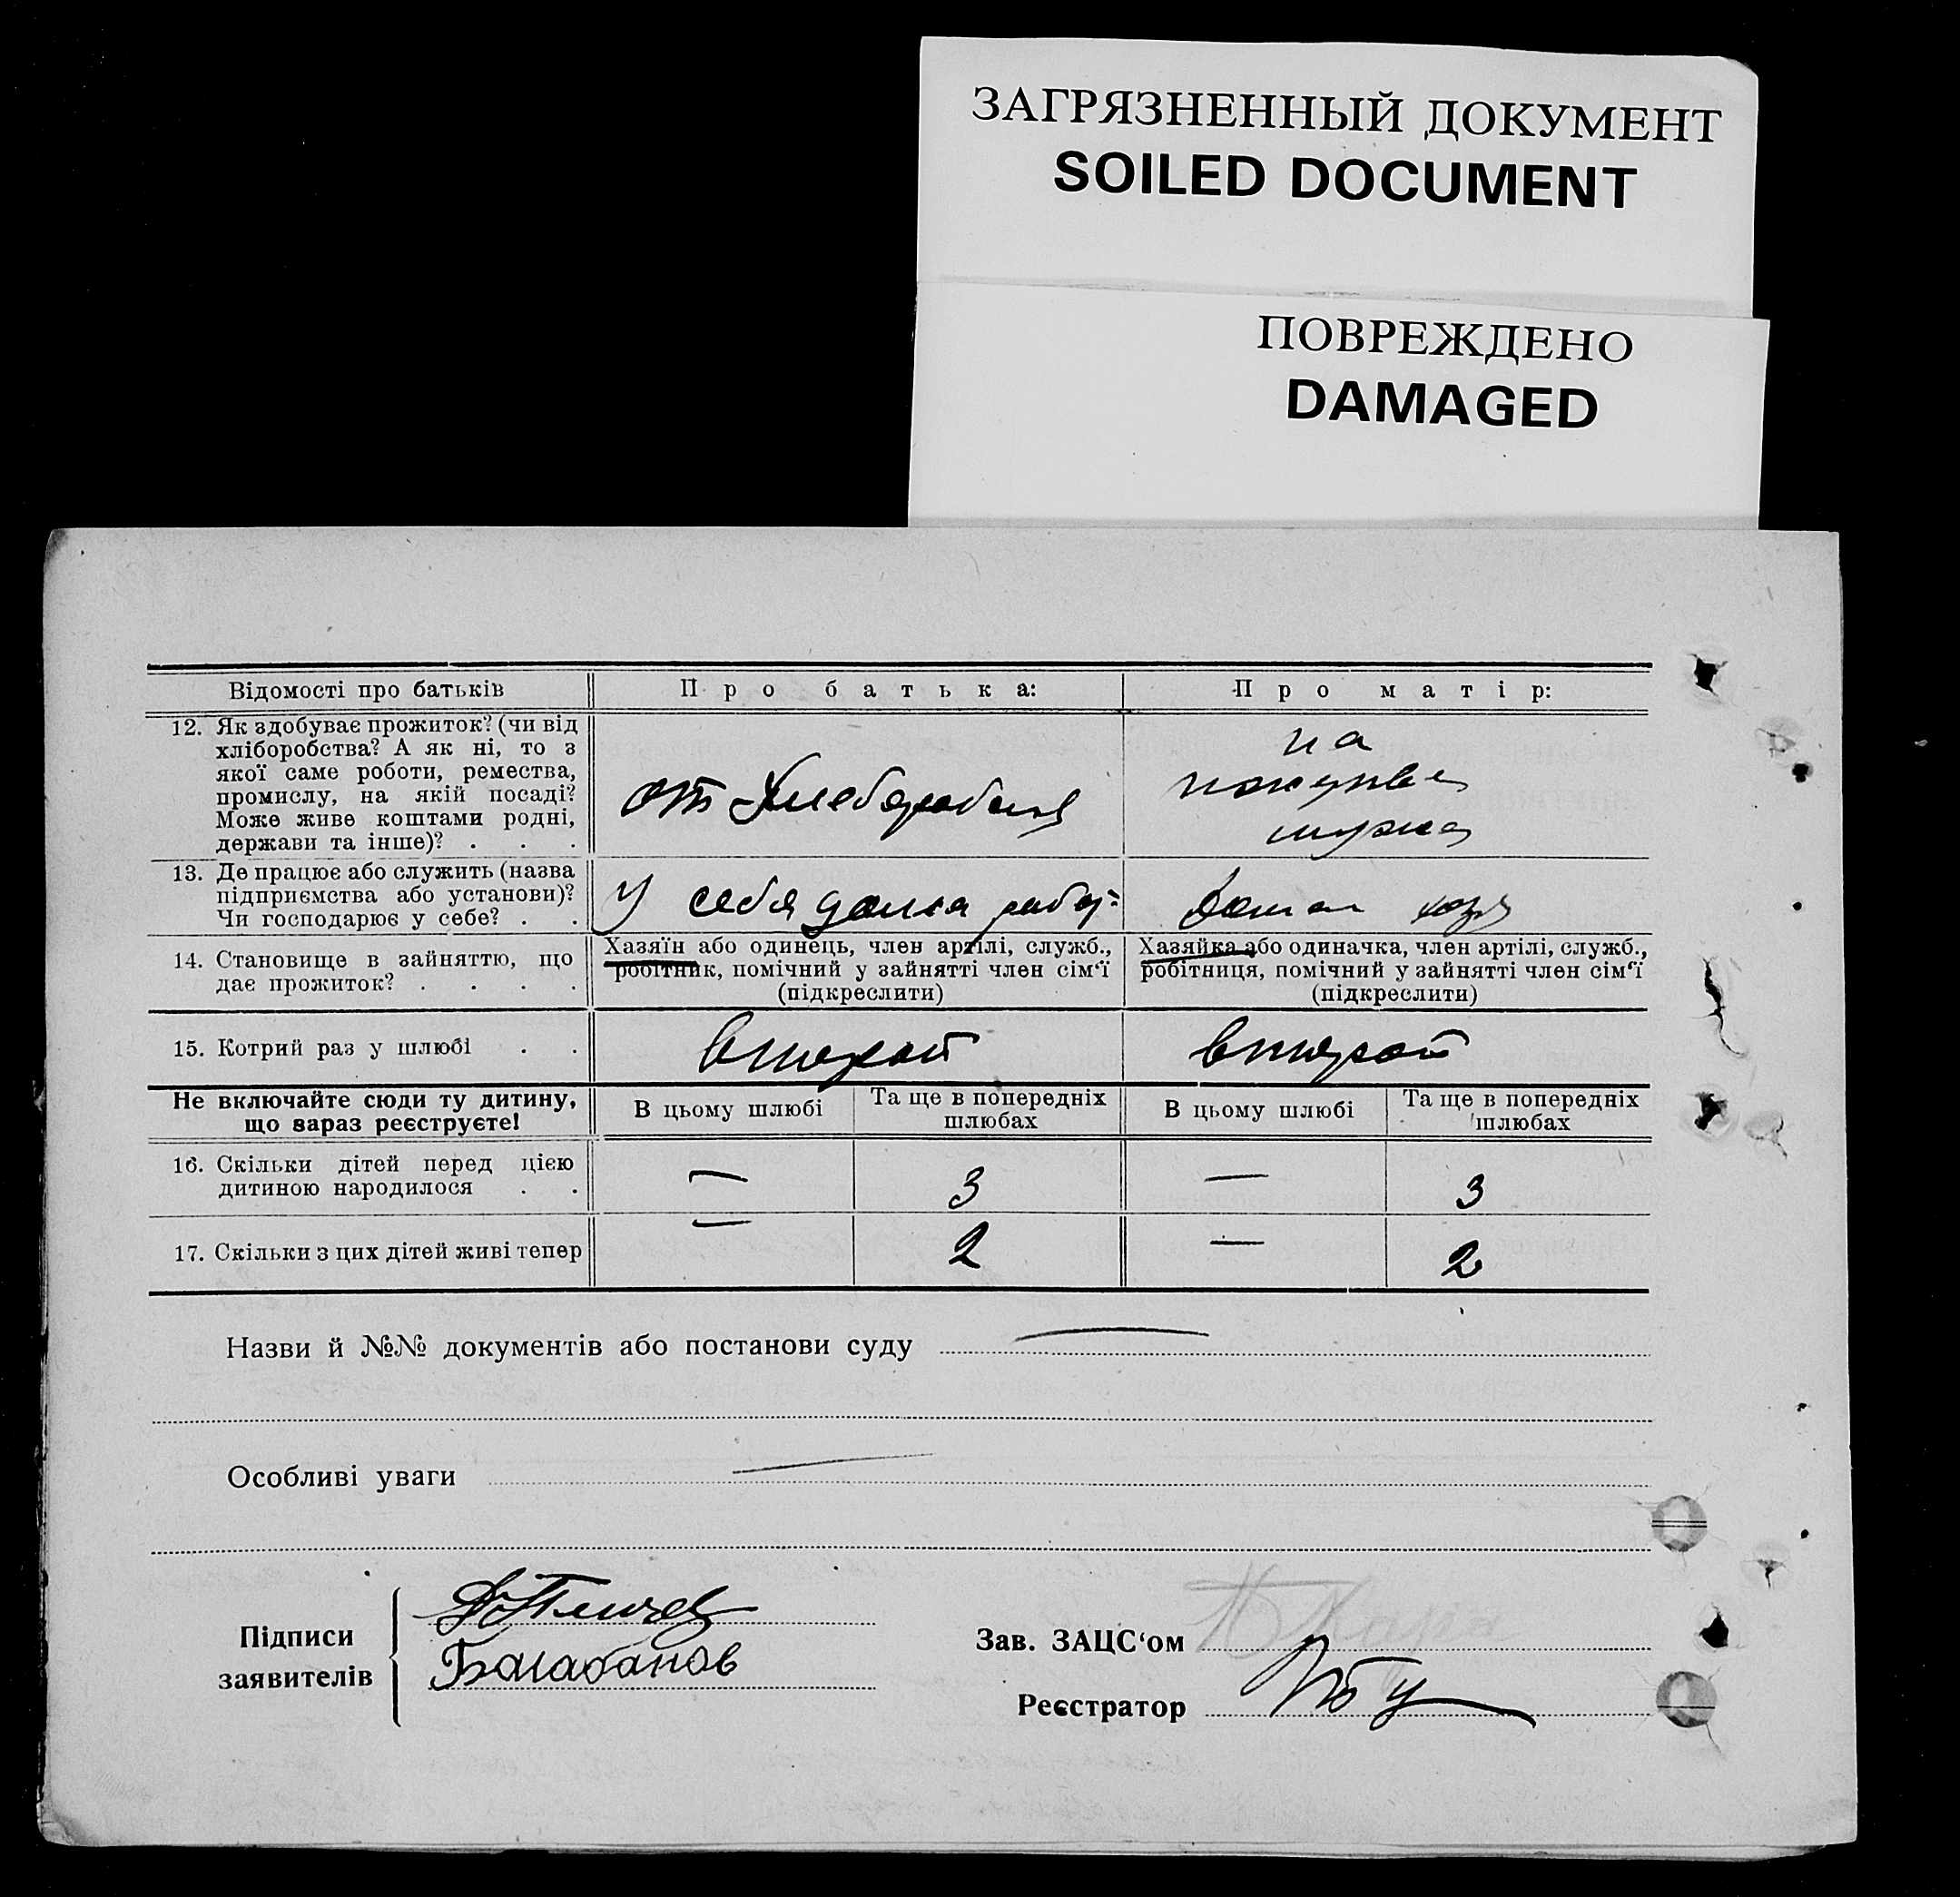 ЗАГРЯЗНЕННЫЙ ДОКУМЕНТ
SOILED DOCUMENT
ПОВРЕЖДЕНО
DAMAGED
Відомості про батьків
Про батька:
Про матір:
12. Як здобуває прожиток? (чи від
хліборобства? А як ні, то з
якої саме роботи, ремества,
промислу, на якій посаді?
Може живе коштами родні,
держави та інше)? . . .
от
на
мужа
13. Де працює або служить (назва
підприємства або установи)?
Чи господарює у себе? . .
У себя дома
14. Становище в зайняттю, що
дає прожиток? . . . .
Хазяїн або одинець, член артілі, служб.,
робітник, помічний у зайнятті член сім'ї
(підкреслити)
Хазяйка або одиначка, член артілі, служб.,
робітниця, помічний у зайнятті член сім'ї
(підкреслити)
15. Котрий раз у шлюбі . .
второй
второй
Не включайте сюди ту дитину,
що зараз реєструєте!
В цьому шлюбі
Та ще в попередніх
шлюбах
В цьому шлюбі
Та ще в попередніх
шлюбах
16. Скільки дітей перед цією
дитиною народилося . .
— 3 — 3
17. Скільки з цих дітей живі тепер
— 2 — 2
Назви й №№ документів або постанови суду —
Особливі уваги —
Підписи
заявителів
Балабанов
Зав. ЗАЦС'ом
Реєстратор